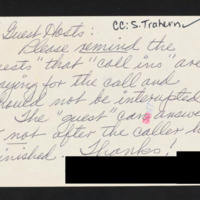 CC: S. Trahern
Guest Hosts:
Please remind the
ests" that "call ins" are
ying for the call and
ould not be interupted
The "guest" can answer
not after the caller
inished. Thanks!